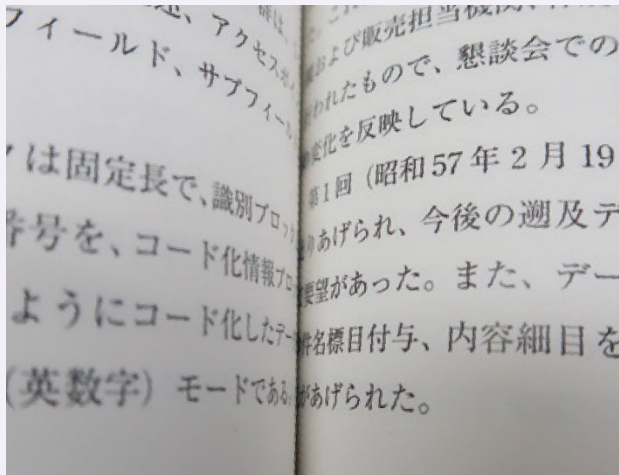 述、アクセスポイ
フィールド、サブフィール
は固定長で、識別ブロッ
番号を、コード化情報ブロ
ようにコード化したデー
(英数字) モードである。
および販売担当機関、
われたもので、懇談会での
変化を反映している。
第1回 (昭和57年2月19
あげられ、今後の遡及デ
要望があった。また、デー
件名標目付与、内容細目を
があげられた。